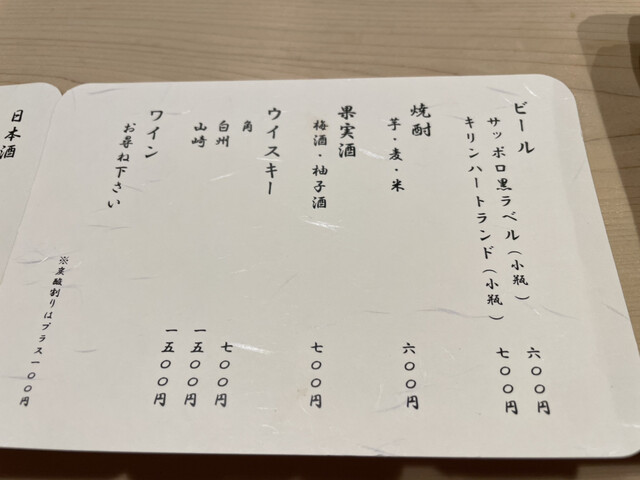 ビール
サッポロ黒ラベル(小瓶) 六〇〇円
キリンハートランド(小瓶) 七〇〇円
焼酎
芋・麦・米 六〇〇円
果実酒
梅酒・柚子酒 七〇〇円
ウイスキー
角 七〇〇円
白州 一五〇〇円
山崎 一五〇〇円
ワイン
お尋ね下さい
※炭酸割りはプラス一〇〇円
日本酒